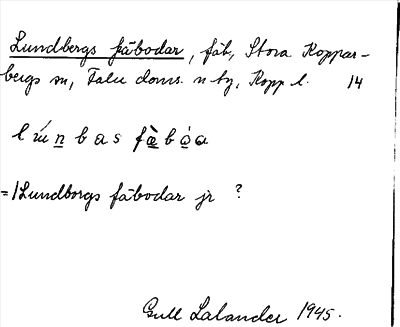 Lundbergs fäbodar, fäb, Stora Koppar-
bergs sn, Falu doms. n tg, Kopp l. 14
l ú n b a s f æ̀ b ȯ a
=/Lundborgs fäbodar jr ?
Gull Lalander 1945.